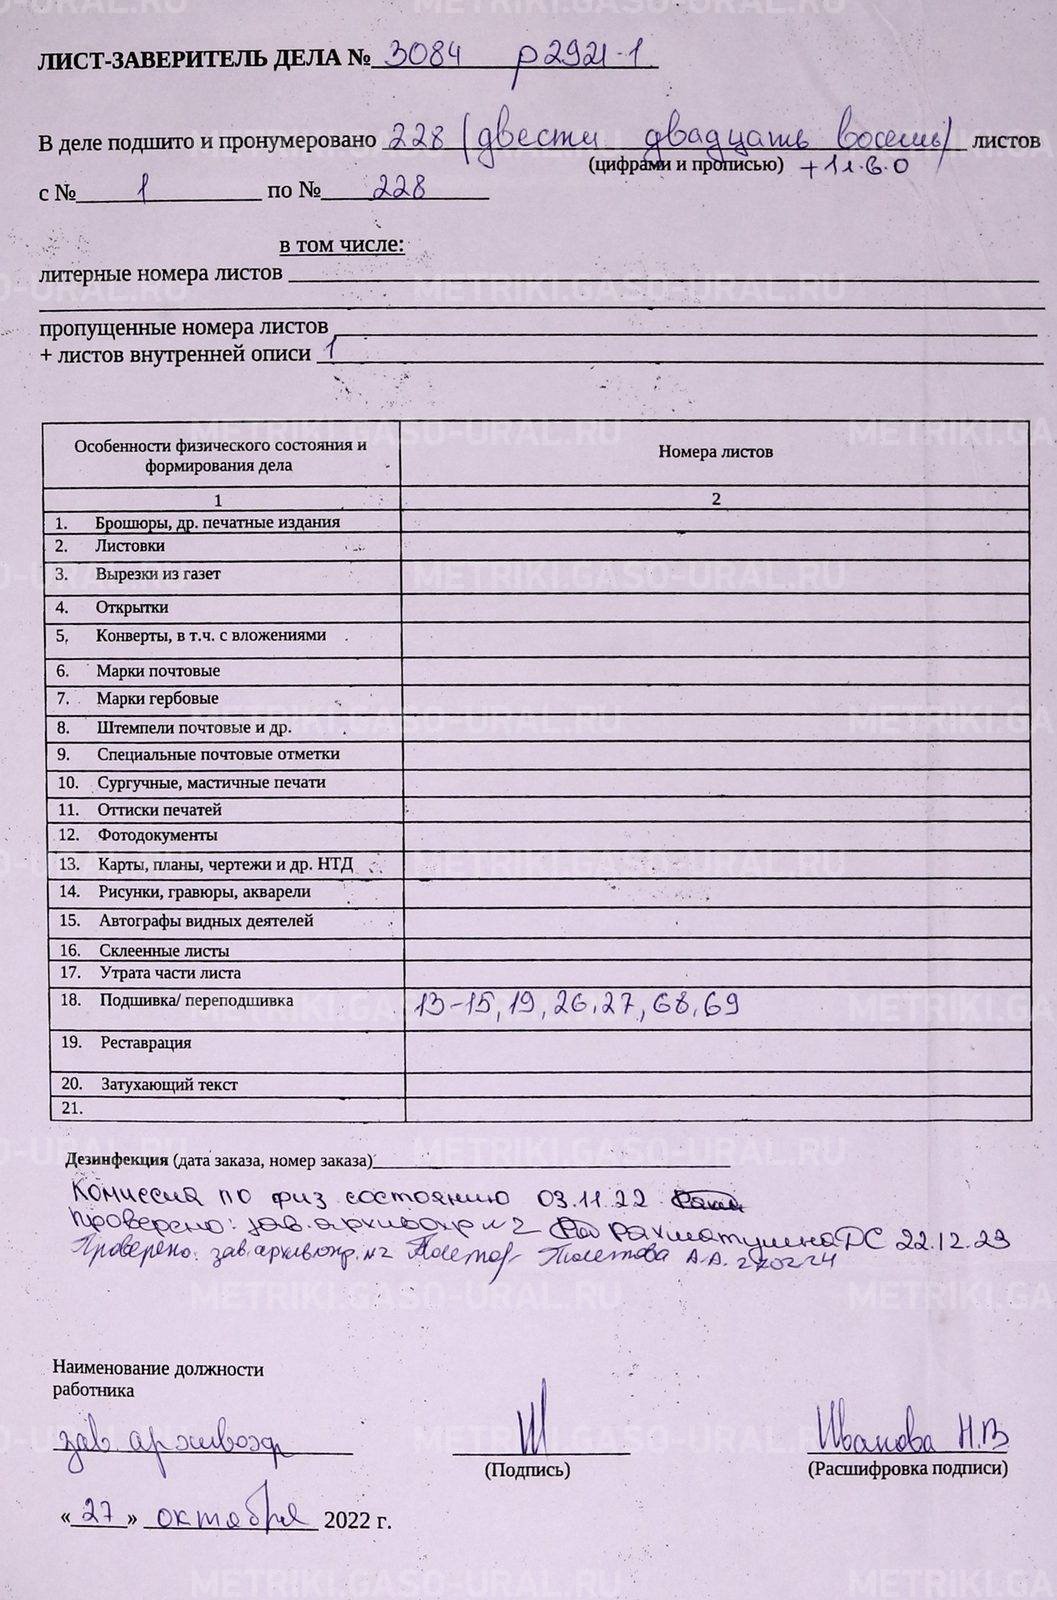 ЛИСТ-ЗАВЕРИТЕЛЬ ДЕЛА № 3084 р2921-1
В деле подшито и пронумеровано 228 (двести двадцать восемь) листов
(цифрами и прописью) +1л.в.о
с № 1 по № 228
в том числе:
литерные номера листов
пропущенные номера листов
+ листов внутренней описи 1
Особенности физического состояния и формирования дела Номера листов
1 2
1. Брошюры, др. печатные издания
2. Листовки
3. Вырезки из газет
4. Открытки
5, Конверты, в т.ч. с вложениями
6. Марки почтовые
7. Марки гербовые
8. Штемпели почтовые и др.
9. Специальные почтовые отметки
10. Сургучные, мастичные печати
11. Оттиски печатей
12. Фотодокументы
13. Карты, планы, чертежи и др. НТД
14. Рисунки, гравюры, акварели
15. Автографы видных деятелей
16. Склеенные листы
17. Утрата части листа
18. Подшивка/ переподшивка 13-15, 19, 26, 27, 68, 69
19. Реставрация
20. Затухающий текст
21.
Дезинфекция (дата заказа, номер заказа)
Комиссия по физ состоянию 03.11.22
Проверено: зав. архивохр №2 Рахматулина ДС 22.12.23
Проверено: зав. архивохр. №2 А.А. 270224
Наименование должности
работника
зав. архивохр Иванова Н.В
(Подпись) (Расшифровка подписи)
«27» октября 2022 г.
METRIKI.GASO-URAL.RU